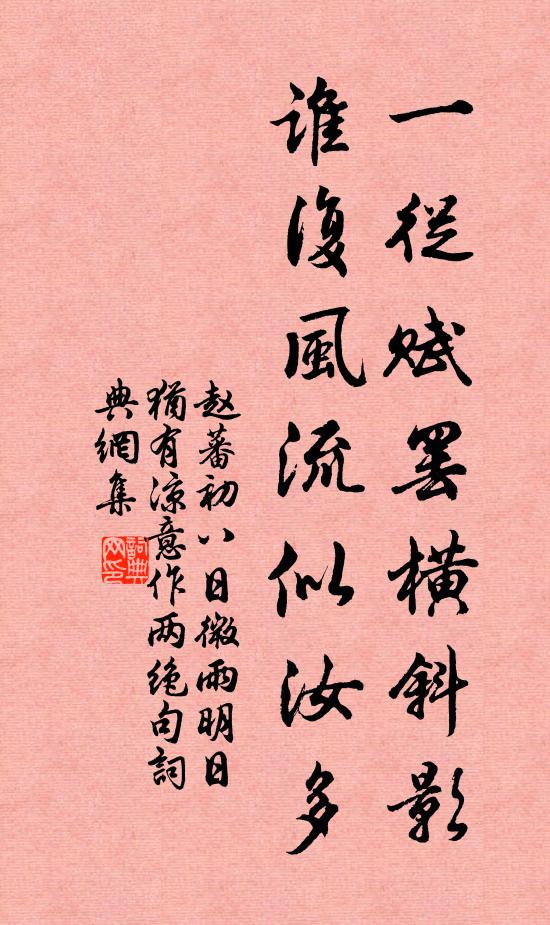 一從赋罢橫斜影
誰復風流似汝多
赵蕃初八日微雨明日
猶有涼意作两绝句詞
典網集
詞典
网印